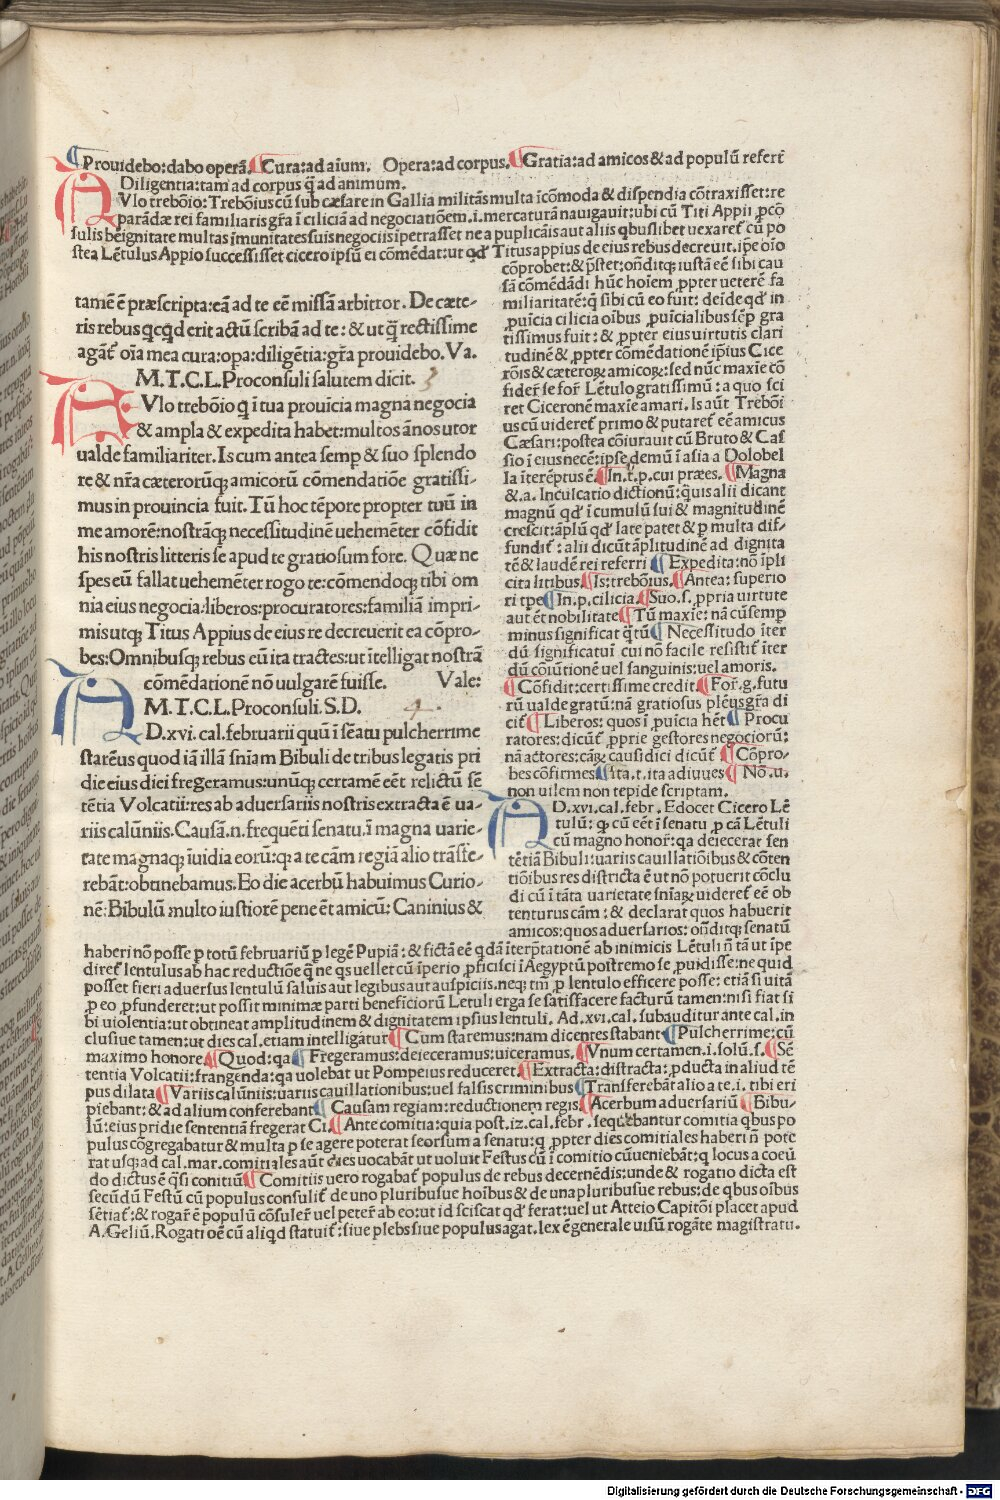 Prouidebo:dabo operã. Cura:ad aĩum. Opera:ad corpus. Gratia:ad amicos & ad populũ refert̃
Diligentia:tam ad corpus q̃ ad animum.
AVlo trebõio: Trebõius cũ sub cæsare in Gallia militãs multa ĩcõmoda & dispendia cõtraxisset:re
parãdæ rei familiaris gr̃a ĩ ciliciã ad negociatiõem.i.mercaturã nauigauit:ubi cũ Titi Appii ꝓcõ
sulis beĩgnitate multas ĩmunitates suis negociis ĩpetrasset ne a puplicãis aut aliis qbuslibet uexaret̃ cũ po
stea Lẽtulus Appio successisset cicero ipsũ ei cõmẽdat:ut qd̃ Titus appius de eius rebus decreuit.ip̃e oĩo
cõprobet:& p̃stet:oñditq; iustã eẽ sibi cau
sã comẽdãdi hũc hoĩem ꝓpter ueterẽ fa
miliaritatẽ:q̃ sibi cũ eo fuit: deĩde qd̃ in
ꝓuĩcia cilicia oĩbus ꝓuĩcialibus sẽp gra
tissimus fuit: & ꝓpter eius uirtutis clari
tudinẽ & ꝓpter cõmẽdationẽ ip̃ius Cice
rõis & cæteroꝝ amicoꝝ:sed nũc maxĩe cõ
fider̃ se for̃ Lẽtulo gratissimũ: a quo sci
ret Ciceronẽ maxĩe amari. Is aũt Trebõi
us cũ uideret̃ primo & putaret̃ eẽ amicus
Cæsari: postea cõiurauit cũ Bruto & Cas
sio ĩ eius necẽ:ipse demũ ĩ asia a Dolobel
la ĩterẽptus ẽ. In.t.p.cui præes. Magna
&.a. Inculcatio dictionũ: quis alii dicant
magnũ qd̃ ĩ cumulũ sui & magnitudinẽ
crescit:ãplũ qd̃ late patet & p multa dif-
fundit̃: alii dicũt ãplitudinẽ ad dignita
tẽ & laudẽ rei referri Expedita: nõ ĩpli
cita litibus. Is: trebõius. Antea: superio
ri tp̃e In.p.cilicia. Suo.s. ꝓpria uirtute
aut ẽt nobilitate Tũ maxĩe: nã cũ semp
minus significat q̃ tũ Necessitudo ĩter
dũ significatuĩ cui nõ facile resistit̃ ĩter
dũ cõiũtionẽ uel sanguinis:uel amoris.
Cõfidit:certissime credit. For̃.g.futu
rũ ualde gratũ: nã gratiosus plẽus gr̃a di
cit̃ Liberos: quos ĩ ꝓuĩcia hẽt Procu
ratores: dicũt̃ ꝓprie gestores negociorũ:
nã actores:cãꝝ causidici dicũt̃ Cõpro-
bes cõfirmes Ita.t.ita adiuues Nõ.u.
non uilem non tepide scriptam.
AD.xvi.cal.febr. Edocet Cicero Lẽ
tulũ: q; cũ eẽt ĩ senatu ꝓ cã Lẽtuli
cũ magno honor̃:qa deiecerat sen
tẽtiã Bibuli:uariis cauillatiõibus & cõten
tiõibus res districta ẽ ut nõ potuerit cõclu
di cũ ĩ tãta uarietate sñiaꝝ uideret̃ eẽ ob
tenturus cãm: & declarat quos habuerit
amicos:quos aduersarios: oñditq; senatũ
tamẽ ẽ præscripta:eã ad te eẽ missã arbitror. De cæte-
ris rebus qcq̃d erit actũ scribã ad te: & ut q̃ rectissime
agãt̃ oĩa mea cura:opa:diligẽtia:gr̃a prouidebo. Va.
M.T.C.L.Proconsuli salutem dicit. 3
AVlo trebõio q̃ ĩ tua prouĩcia magna negocia
& ampla & expedita habet:multos ãnos utor
ualde familiariter. Is cum antea semp & suo splendo
re & nr̃a cæterorũq; amicorũ cõmendatiõe gratissi-
mus in prouincia fuit. Tũ hoc tẽpore propter tuũ in
me amorẽ:nostrãq; necessitudinẽ uehemẽter cõfidit
his nostris litteris se apud te gratiosum fore. Quæ ne
spes eũ fallat uehemẽter rogo te:cõmendoq; tibi om
nia eius negocia:liberos:procuratores:familiã impri-
misutq; Titus Appius de eius re decreuerit ea cõpro-
bes:Omnibusq; rebus cũ ita tractes:ut ĩtelligat nostrã
cõmẽdationẽ nõ uulgarẽ fuisse. Vale:
M.T.C.L.Proconsuli.S.D. 4.
AD.xvi.cal.februarii quũ ĩ sẽatu pulcherrime
starẽus quod iã illã sñiam Bibuli de tribus legatis pri
die eius diei fregeramus:unũq; certamẽ eẽt relictũ sẽ
tẽtia Volcatii:res ab aduersariis nostris extracta ẽ ua-
riis calũniis. Causã.n.frequẽti senatu.ĩ magna uarie-
tate magnaq; ĩuidia eorũ:q; a te cãm regiã alio trãsfe-
rebãt:obtinebamus. Eo die acerbũ habuimus Curio-
nẽ:Bibulũ multo iustiorẽ pene ẽt amicũ: Caninius &
haberi nõ posse p totũ februariũ p legẽ Pupiã: & fictã eẽ q̃dã ĩterp̃tationẽ ab inimicis Lẽtuli ñ tã ut ip̃e
diret̃ lentulus ab hac reductiõe q̃ ne qs uellet cũ ĩperio ꝓficisci ĩ Aegyptũ postremo se ꝓuidisse:ne quid
posset fieri aduersus lentulũ saluis aut legibus aut auspiciis.neq; tm̃ ꝓ lentulo efficere posse: etiã si uitã
ꝓ eo ꝓfunderet:ut possit minimæ parti beneficiorũ Letuli erga se satisfacere facturũ tamen:nisi fiat si
bi uiolentia:ut obtineat amplitudinem & dignitatem ipsius lentuli. Ad.xvi.cal.subauditur ante cal.in
clusiue tamen:ut dies cal.etiam intelligatur Cum staremus:nam dicentes stabant Pulcherrime:cũ
maximo honore. Quod:qa Fregeramus:deieceramus:uiceramus. Vnum certamen.i.solũ.s. Sẽ
tentia Volcatii:frangenda:qa uolebat ut Pompeius reduceret. Extracta:distracta:ꝓducta in aliud tẽ
pus dilata Variis calũniis:uariis cauillationibus:uel falsis criminibus Transferebãt alio a te.i. tibi eri
piebant:& ad alium conferebant Causam regiam:reductionem regis. Acerbum aduersariũ Bibu-
lũ:eius pridie sententiã fregerat Ci. Ante comitia:quia post.iz.cal.febr.sequebantur comitia qbus po
pulus cõgregabatur & multa p se agere poterat seorsum a senatu: q̃ ꝓpter dies comitiales haberi ñ pote
rat usq; ad cal.mar.comitiales aũt dies uocabãt ut uoluit Festus cũ ĩ comitio cũueniebãt: q̃ locus a coeũ
do dictus ẽ q̃si conitiũ Comitiis uero rogabat̃ populus de rebus decernẽdis:unde & rogatio dicta est
secũdũ Festũ cũ populus consulit̃ de uno pluribusue hoĩbus & de una pluribusue rebus:de qbus oĩbus
sẽtiat̃:& rogar̃ ẽ populũ cõsuler̃ uel peter̃ ab eo:ut id sciscat qd̃ ferat:uel ut Atteio Capitõi placet apud
A.Geliũ. Rogati oẽ cũ aliqd statuit̃: siue plebs siue populus agat.lex ẽ generale uisũ rogãte magistratu.
Digitalisierung gefördert durch die Deutsche Forschungsgemeinschaft - DFG